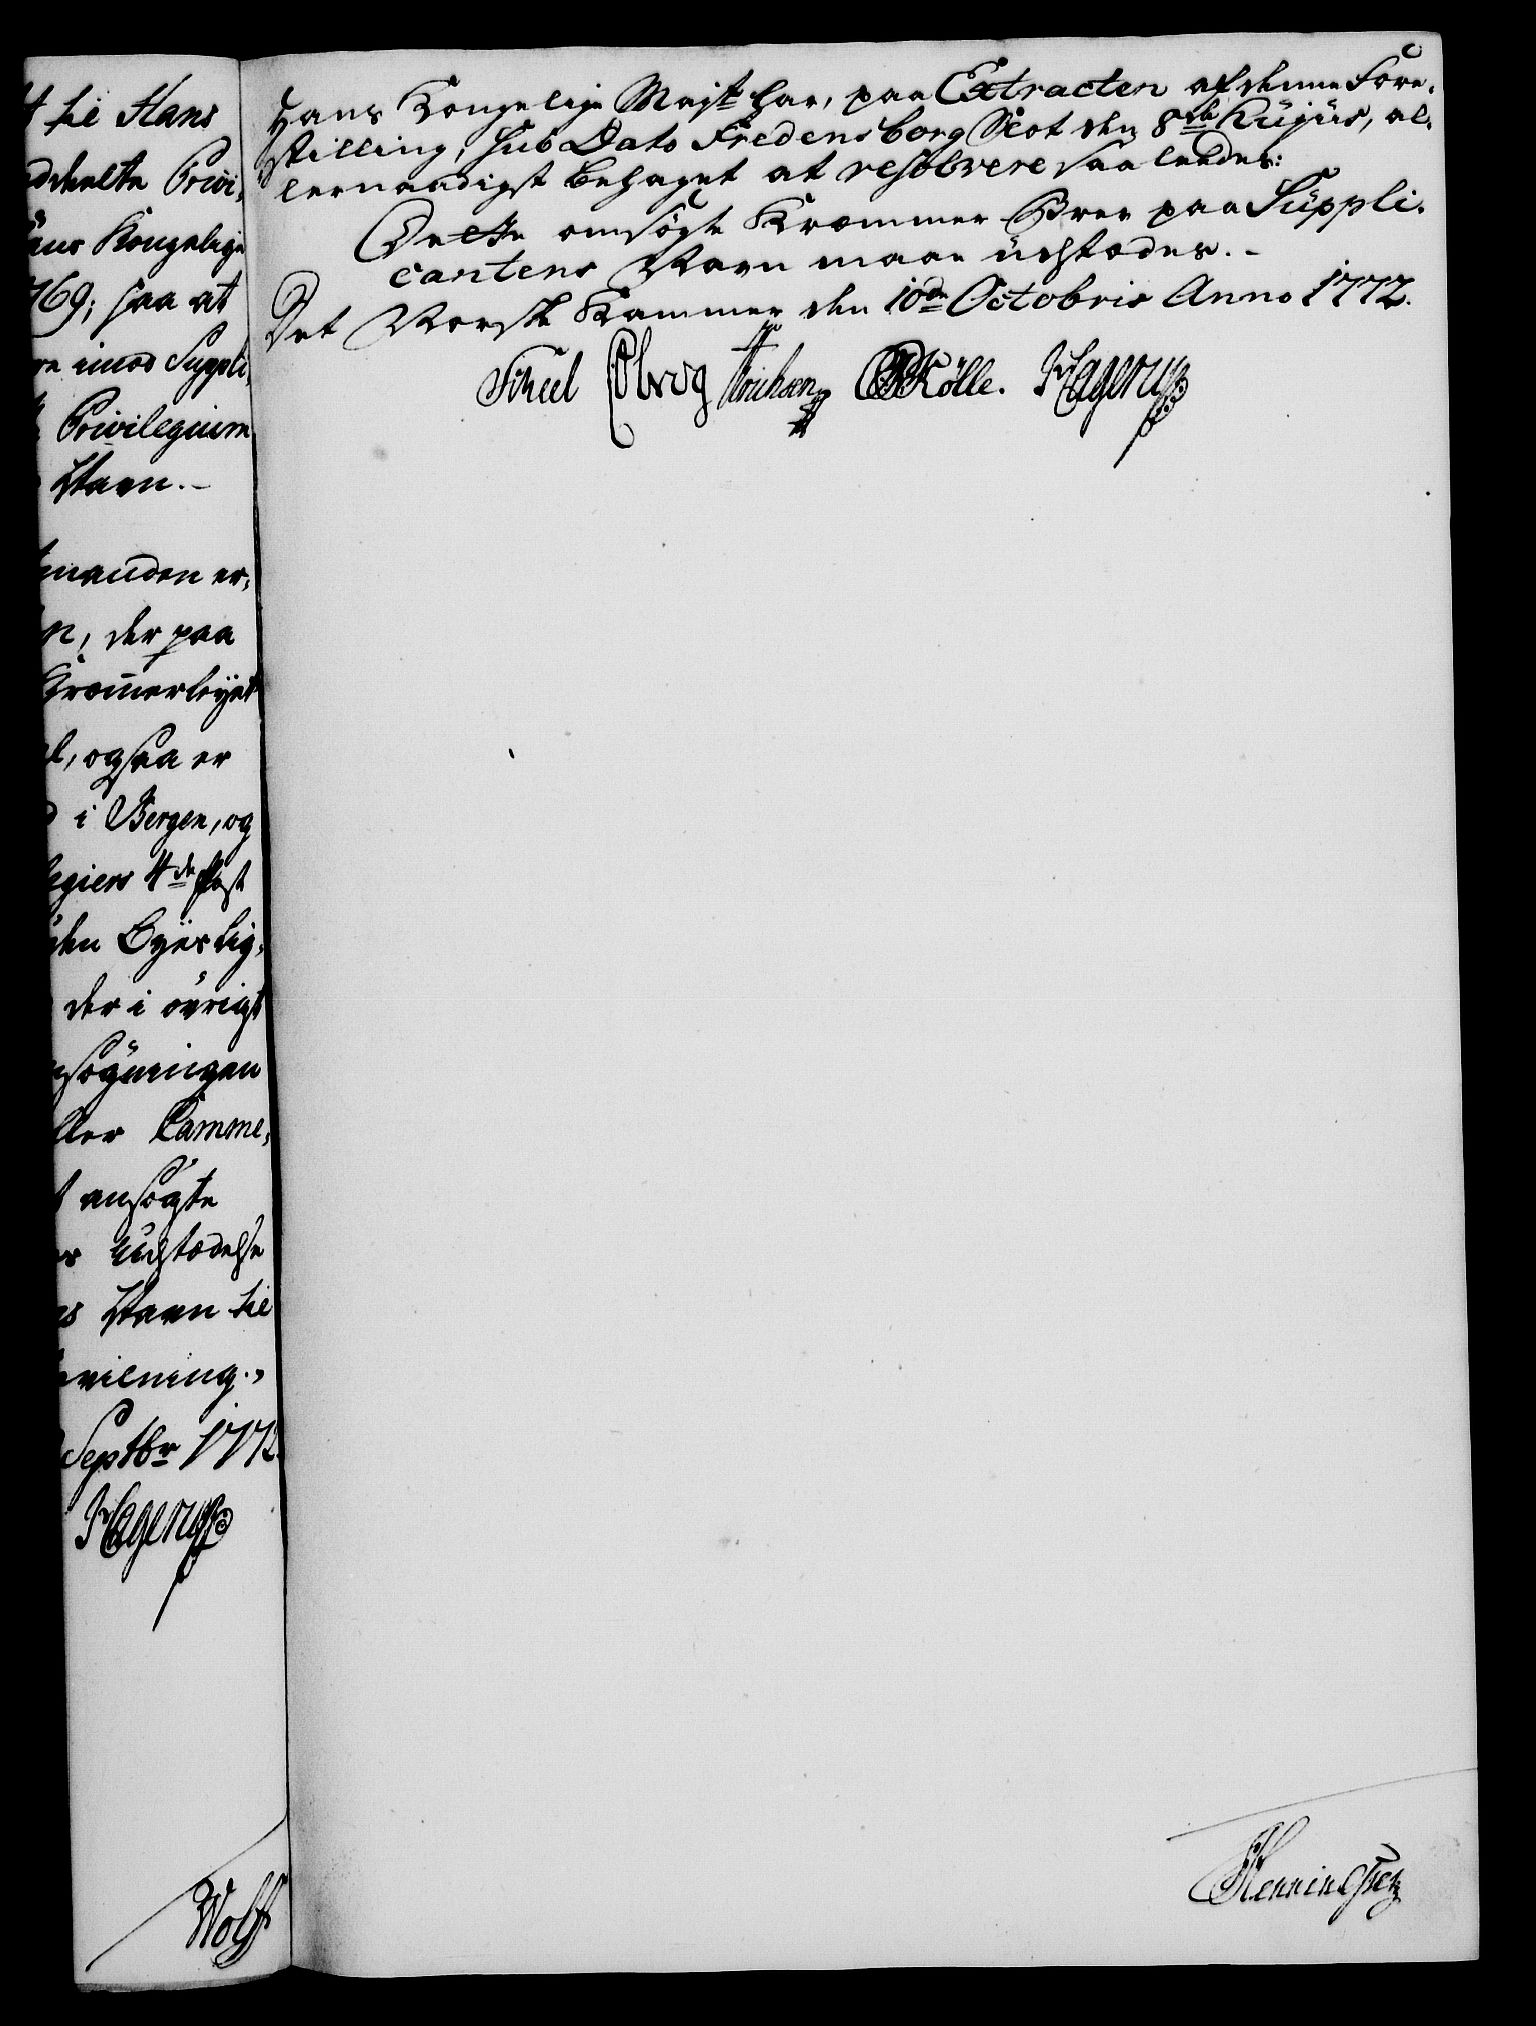 til Hans
Privi-
Kongelige
769; saa at
imod Suppli,
Privilegium
Navn.
manden er,
der paa
Kromerløyet
ogsaa er
i Bergen, og
legiers 4de Post
den Byes Lig,
der i övrigt
nsøgningen
ller Camme,
ansøgte
Udstædelse
s Navn til
vilning.
Septbr 1772.
Hagerup
Wolff
Hans Kongelige Majst har, paa Extracten af denne Fore-
stilling, sub Dato Fredensborg Slot den 8de hujus, al-
lernaadigst behaget at resolvere saaledes:
Dette omsögte Kræmmer Brev paa Suppli-
cantens Navn maae udstædes.
Det Norske Kammer den 10de Octobris Anno 1772.
Scheel Erichsen Kölle. Hagerup
Henningsen